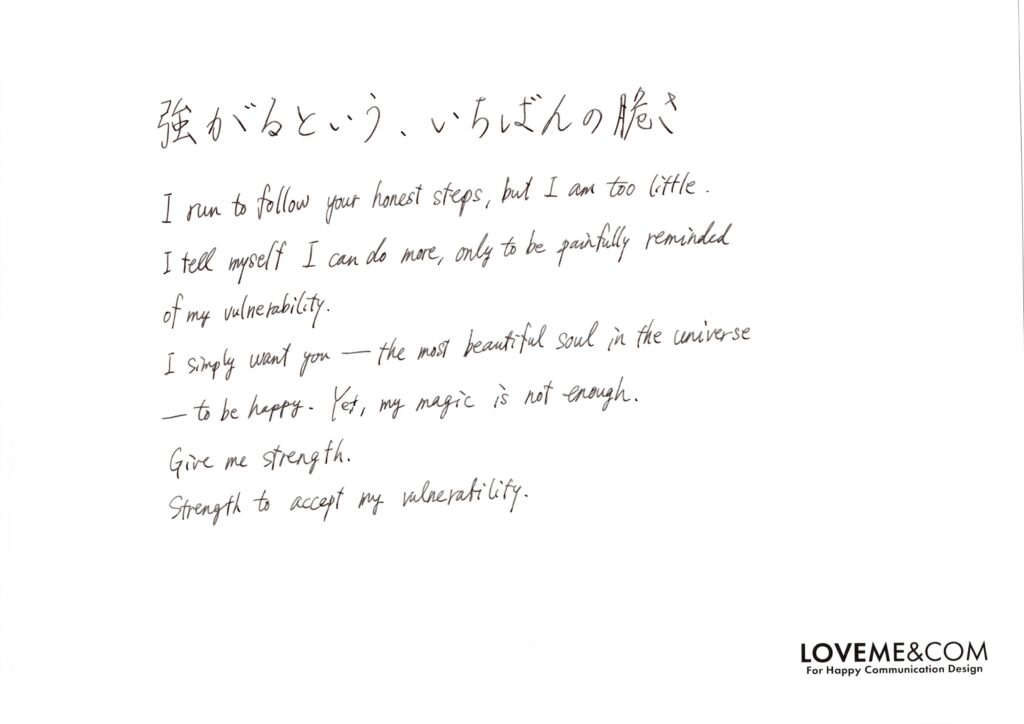 強がるという、いちばんの脆さ
I run to follow your honest steps, but I am too little.
I tell myself I can do more, only to be painfully reminded
of my vulnerability.
I simply want you — the most beautiful soul in the universe
— to be happy. Yet, my magic is not enough.
Give me strength.
Strength to accept my vulnerability.
LOVEME&COM
For Happy Communication Design